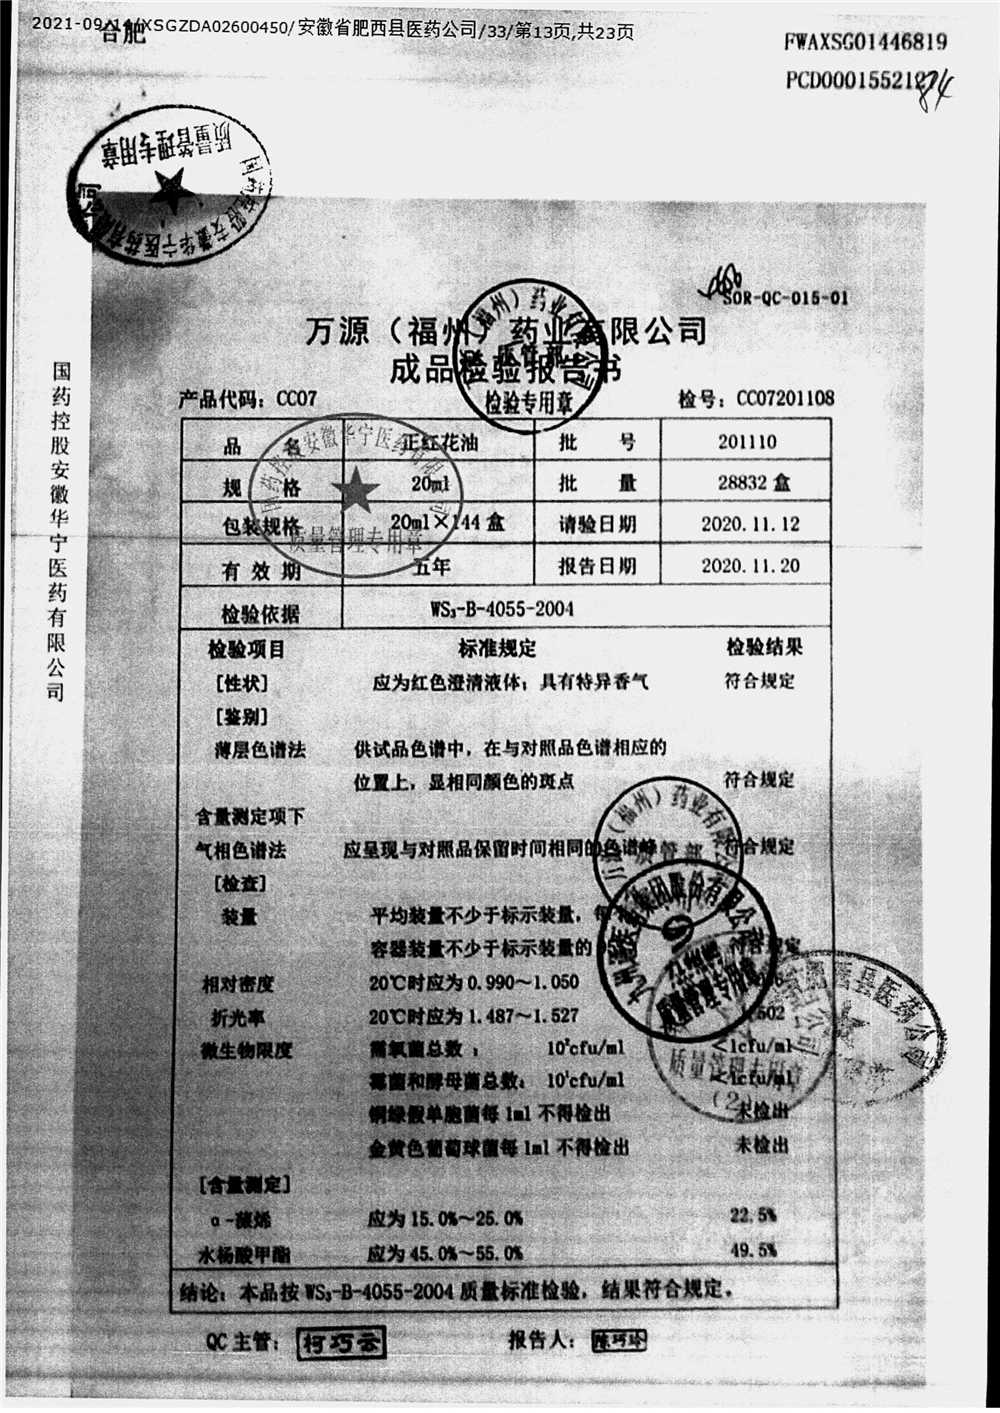 2021-09 XSGZDA02600450/安徽省肥西县医药公司/33/第13页,共23页
合肥
FWAXSG01446819
PCD0001552127
84
质量管理专用章
国药控股安徽华宁医药有限公司
SOR-QC-015-01
万源（福州）药业有限公司
成品检验报告书
质管部
检验专用章
产品代码：CC07 检号：CC07201108
国药控股安徽华宁医药有限公司
品 名 正红花油 批 号 201110
规 格 20ml 批 量 28832 盒
包装规格 20ml×144 盒 请验日期 2020.11.12
国药控股安徽华宁医药有限公司
质量管理专用章
有 效 期 五年 报告日期 2020.11.20
检验依据 WS₃-B-4055-2004
检验项目 标准规定 检验结果
[性状] 应为红色澄清液体；具有特异香气 符合规定
[鉴别]
薄层色谱法 供试品色谱中，在与对照品色谱相应的
位置上，显相同颜色的斑点 符合规定
含量测定项下
气相色谱法 应呈现与对照品保留时间相同的色谱峰 符合规定
（福州）药业有限公司
质管部
[检查]
装量 平均装量不少于标示装量，每
容器装量不少于标示装量的 符合规定
九州通医药集团股份有限公司
质量管理专用章
相对密度 20℃时应为 0.990～1.050
折光率 20℃时应为 1.487～1.527 502
肥西县医药公司
微生物限度 需氧菌总数： 10²cfu/ml <1cfu/ml
质量管理专用章
(2)
霉菌和酵母菌总数： 10¹cfu/ml <1cfu/ml
铜绿假单胞菌每 1ml 不得检出 未检出
金黄色葡萄球菌每 1ml 不得检出 未检出
[含量测定]
α-蒎烯 应为 15.0%～25.0% 22.5%
水杨酸甲酯 应为 45.0%～55.0% 49.5%
结论：本品按 WS₃-B-4055-2004 质量标准检验，结果符合规定。
QC 主管： 柯巧云 报告人： 陈巧玲